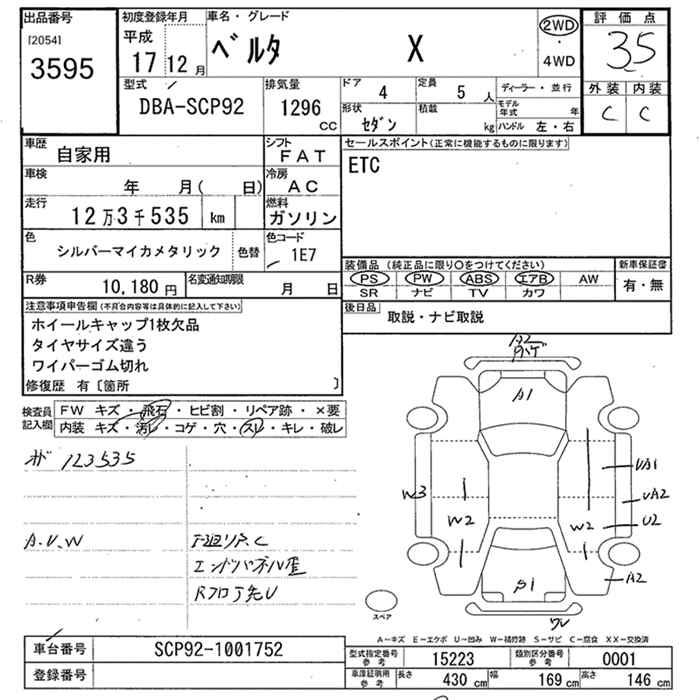 出品番号
[2054]
3595
初度登録年月
平成
17 12 月
車名・グレード
ベルタ X
2WD
・
4WD
評価点
3.5
外装 内装
C C
型式
DBA-SCP92
排気量
1296
CC
ドア 4
定員 5 人
形状 セダン
積載 kg
ディーラー・並行
モデル年式 年
ハンドル 左・右
車歴
自家用
シフト
FAT
車検
年 月( 日)
冷房
AC
走行
12万3千535 km
燃料
ガソリン
色
シルバーマイカメタリック
色替
色コード
1E7
R券
10,180 円
名変通知期限
月 日
セールスポイント(正常に機能するものに限ります)
ETC
装備品(純正品に限り○をつけてください)
PS PW ABS エアB AW
SR ナビ TV カワ
新車保証書
有・無
後日品
取説・ナビ取説
注意事項申告欄(不具合内容等は具体的に記入して下さい)
ホイールキャップ1枚欠品
タイヤサイズ違う
ワイパーゴム切れ
修復歴 有〔箇所 〕
検査員
記入欄
FW キズ・飛石・ヒビ割・リペア跡・×要
内装 キズ・汚レ・コゲ・穴・スレ・キレ・破レ
123535
A.U.W
下廻りP.C
エンドパネル歪
Rフロア先U
A2
A1
W3
W2
W2
UA1
UA2
U2
A2
スペア
A－キズ E－エクボ U－凹み W－補修跡 S－サビ C－腐食 XX－交換済
車台番号
SCP92-1001752
登録番号
型式指定番号
参考
15223
類別区分番号
参考
0001
車庫証明用
参考
長さ 430 cm
幅 169 cm
高さ 146 cm